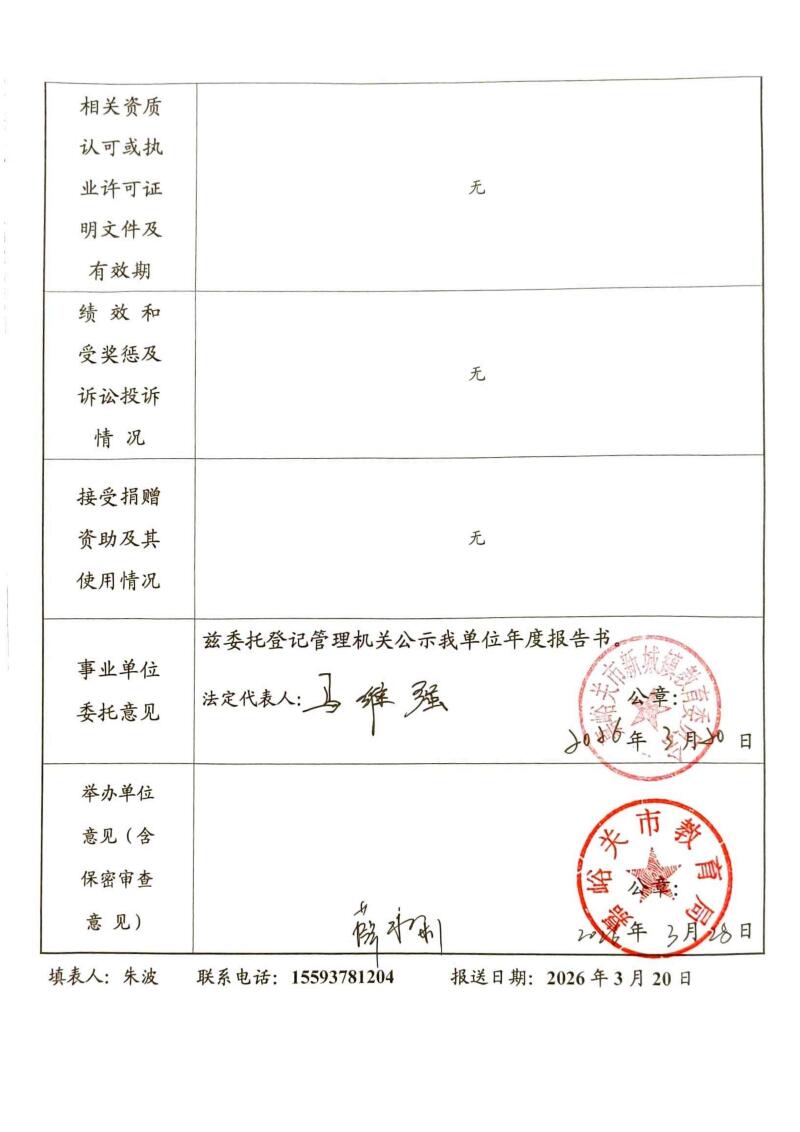 相关资质
认可或执
业许可证
明文件及
有效期
无
绩效和
受奖惩及
诉讼投诉
情况
无
接受捐赠
资助及其
使用情况
无
事业单位
委托意见
兹委托登记管理机关公示我单位年度报告书。
法定代表人：马维强
公章：
2026年3月20日
嘉峪关市新城镇教育委员会
举办单位
意见（含
保密审查
意见）
公章：
2026年3月28日
嘉峪关市教育局
填表人：朱波 联系电话：15593781204 报送日期：2026年3月20日